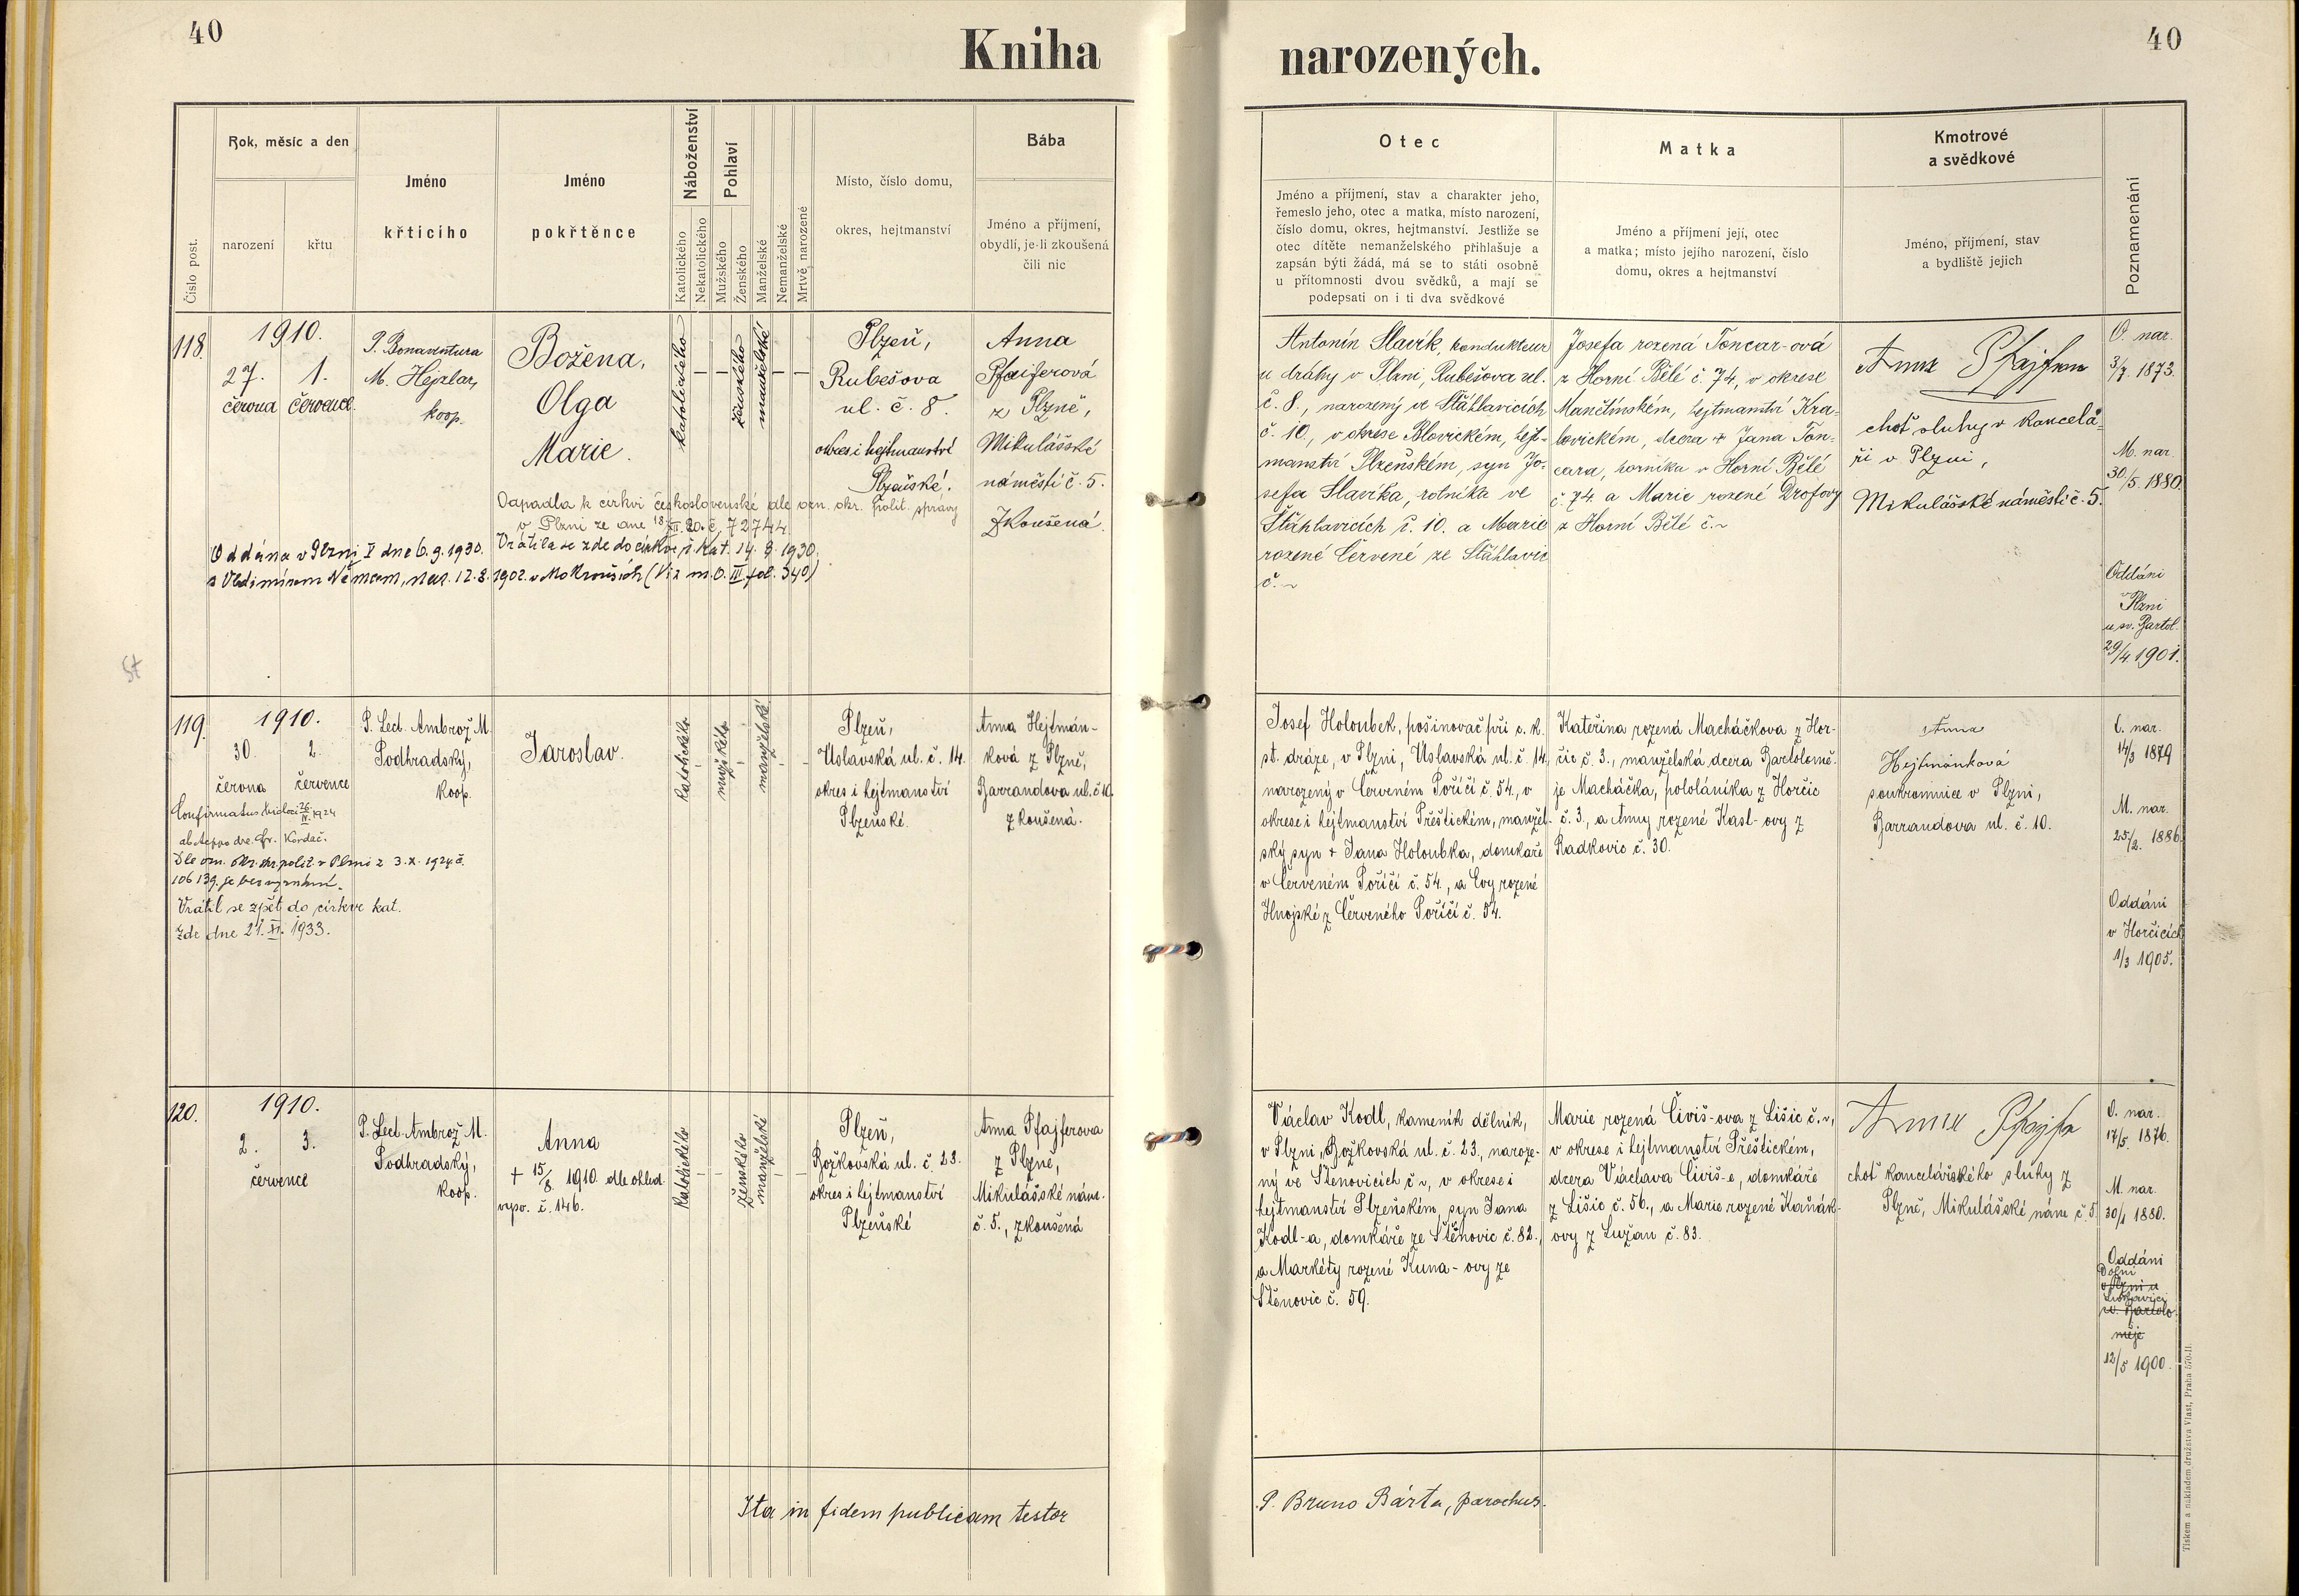 40
Kniha
narozených.
40
Číslo post.
Rok, měsíc a den
narození
křtu
Jméno
křtícího
Jméno
pokřtěnce
Náboženství
Katolického
Nekatolického
Pohlaví
Mužského
Ženského
Manželské
Nemanželské
Mrtvě narozené
Místo, číslo domu,
okres, hejtmanství
Bába
Jméno a příjmení,
obydlí, je-li zkoušená
čili nic
Otec
Jméno a příjmení, stav a charakter jeho,
řemeslo jeho, otec a matka, místo narození,
číslo domu, okres, hejtmanství. Jestliže se
otec dítěte nemanželského přihlašuje a
zapsán býti žádá, má se to státi osobně
u přítomnosti dvou svědků, a mají se
podepsati on i ti dva svědkové
Matka
Jméno a příjmení její, otec
a matka; místo jejího narození, číslo
domu, okres a hejtmanství
Kmotrové
a svědkové
Jméno, příjmení, stav
a bydliště jejich
Poznamenání
118.
1910.
27. 1.
června července.
P. Bonaventura
M. Hejzlar,
koop.
Božena,
Olga
Marie.
katolického
ženského
manželské
Plzeň,
Rubešova
ul. č. 8.
okres i hejtmanství
Plzeňské.
Anna
Pfaiferová
z Plzně,
Mikulášské
náměstí č. 5.
Zkoušená.
Odpadla k církvi československé dle ozn. okr. polit. správy
v Plzni ze dne 18/XII. 20. č. 72744.
Vrátila se zde do církve ř. kat. 14. 8. 1930.
Oddána v Plzni I dne 6. 9. 1930.
s Vladimírem Němcem, nar. 12. 8. 1902. v Mokrouších (Viz m. O. III fol. 340)
Antonín Slavík, kondukteur
u dráhy v Plzni, Rubešova ul.
č. 8., narozený ve Štáhlavicích
č. 10., v okrese Blovickém, hejt-
manství Plzeňském, syn Jo-
sefa Slavíka, rolníka ve
Štáhlavicích č. 10. a Marie
rozené Červené ze Štáhlavic
č. ~
Josefa rozená Toncar-ová
z Horní Bělé č. 74, v okrese
Manětínském, hejtmanství Kra-
lovickém, dcera + Jana Ton-
cara, horníka v Horní Bělé
č. 74. a Marie rozené Drofovy
z Horní Bělé č. ~
Anna Pfajfrova
choť sluhy v kancelá-
ři v Plzni,
Mikulášské náměstí č. 5.
O. nar.
3/7. 1873.
M. nar.
30/5. 1880.
Oddáni
v Plzni
u sv. Bartol.
29/4 1901.
119.
1910.
30. 2.
června července
P. Lect. Ambrož M.
Podhradský,
koop.
Jaroslav.
katolického
mužského
manželské
Plzeň,
Úslavská ul. č. 14.
okres i hejtmanství
Plzeňské.
Anna Hejtmán-
ková z Plzně,
Barrandova ul. č 10.
zkoušená.
Confirmatus 26/IV. 1924
ab Aeppo dre. Fr. Kordač.
Dle ozn. polit. v Plzni z 3. X. 1924 č.
106139. je bez vyznání.
Vrátil se zpět do církve kat.
zde dne 21. XI. 1933.
Josef Holoubek, pošinovač při c. k.
st. dráze, v Plzni, Úslavská ul. č. 14,
narozený v Červeném Poříčí č. 54., v
okrese i hejtmanství Přeštickém, manžel-
ský syn + Jana Holoubka, domkaře
v Červeném Poříčí č. 54., a Evy rozené
Hnojské z Červeného Poříčí č. 54.
Kateřina rozená Macháčkova z Hor-
čic č. 3., manželská dcera Bartolomě-
je Macháčka, pololáníka z Horčic
č. 3., a Anny rozené Kasl-ovy z
Radkovic č. 30.
Anna
Hejtmánková
soukromnice v Plzni,
Barrandova ul. č. 10.
O. nar.
14/3 1879
M. nar.
25/2. 1886.
Oddáni
v Horčicích
1/3 1905.
120.
1910.
2. 3.
července
P. Lect. Ambrož M.
Podhradský,
koop.
Anna
+ 15/8. 1910. dle ohled.
vysv. č. 146.
katolického
ženského
manželské
Plzeň,
Božkovská ul. č. 23.
okres i hejtmanství
Plzeňské
Anna Pfajferova
z Plzně,
Mikulášské nám.
č. 5., zkoušená
Václav Kodl, kameník dělník,
v Plzni, Božkovská ul. č. 23., naroze-
ný ve Štěnovicích č ~, v okrese i
hejtmanství Plzeňském, syn Jana
Kodl-a, domkáře ze Štěnovic č. 82.,
a Markéty rozené Kuna-ovy ze
Štěnovic č. 59.
Marie rozená Čiviš-ova z Lišic č. ~,
v okrese i hejtmanství Přeštickém,
dcera Václava Čiviš-e, domkáře
z Lišic č. 56., a Marie rozené Kaňák-
ovy z Lužan č. 83.
choť kancelářského sluhy z
Plzně, Mikulášské nám č. 5
O. nar.
17/5. 1876.
M. nar.
30/1 1880.
Oddáni
Dolní
v Plzni u
Lukavici
sv. Bartolo-
měje
12/5 1900.
Ita in fidem publicam testor
P. Bruno Bárta, parochus.
Tiskem a nákladem družstva Vlast, Praha 570-II.